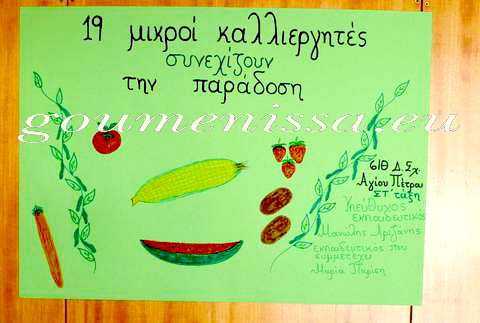 19 μικροί καλλιεργητές
συνεχίζουν
την παράδοση
goumenissa.eu
6/Θ Δ.Σχ.
Αγίου Πέτρου
ΣΤ' τάξη
Υπεύθυνος
εκπαιδευτικός
Μανώλης
εκπαιδευτικός που
συμμετέχει
Μαρία